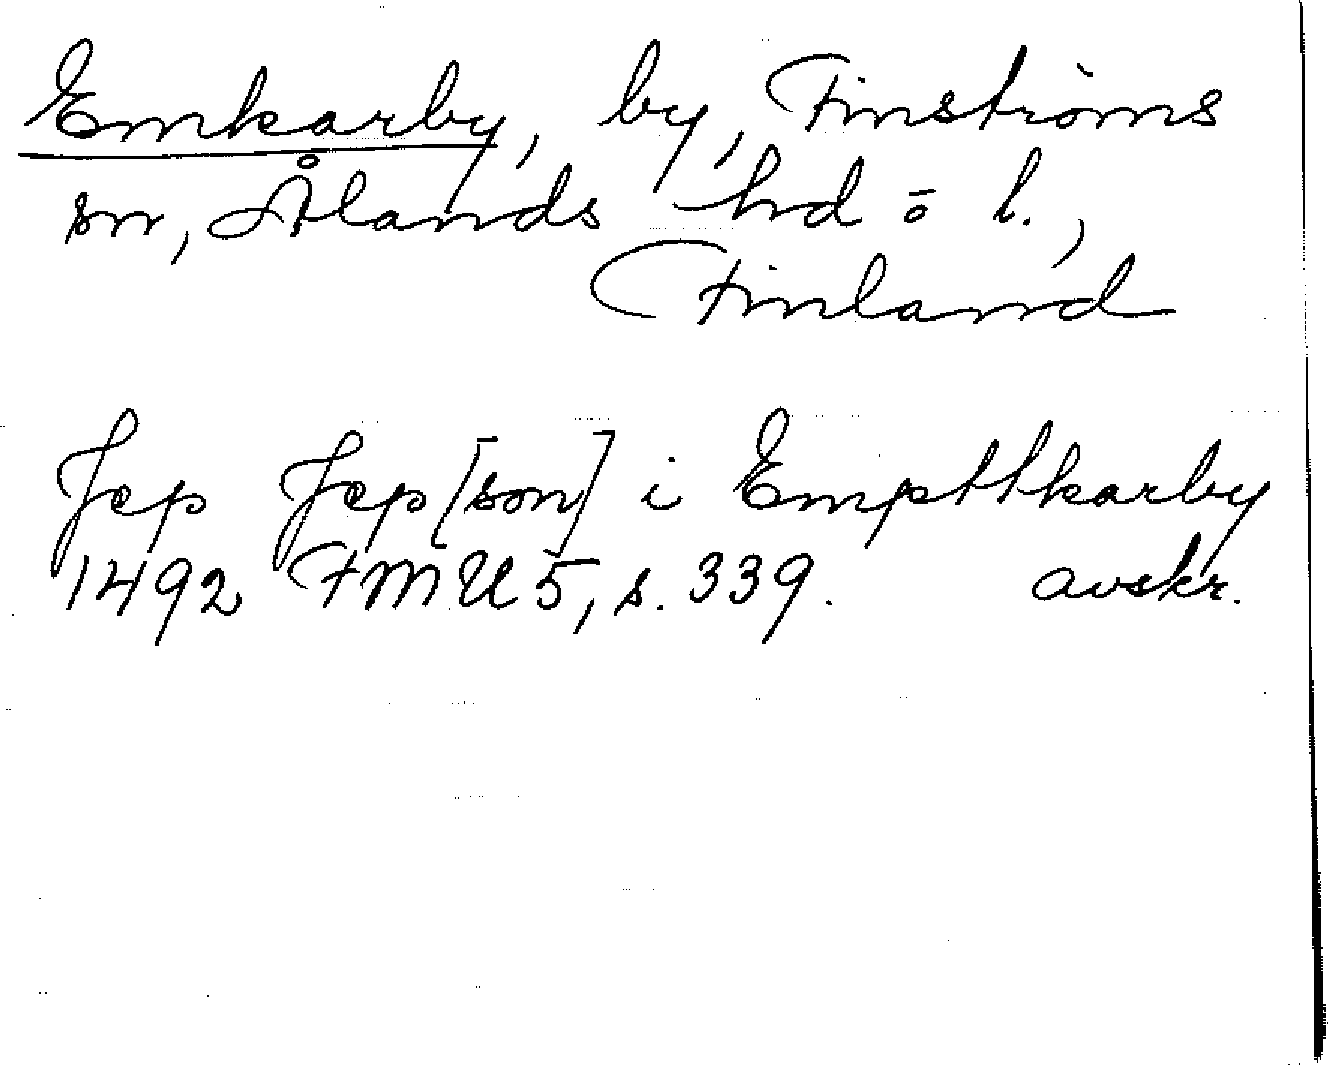 Emkarby, by, Finströms
sn, Ålands hd o l.,
Finland
Jep Jep[son] i Empttkarby
1492 FMU 5, s. 339. avskr.